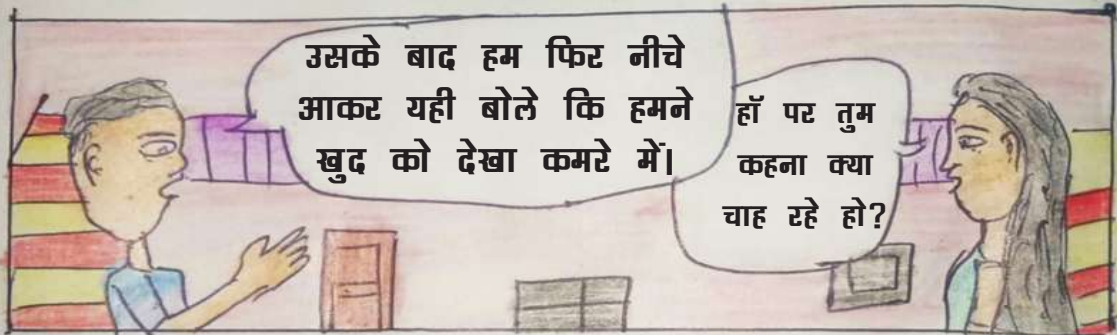 उसके बाद हम फिर नीचे
आकर यही बोले कि हमने
खुद को देखा कमरे में।
हॉ पर तुम
कहना क्या
चाह रहे हो?